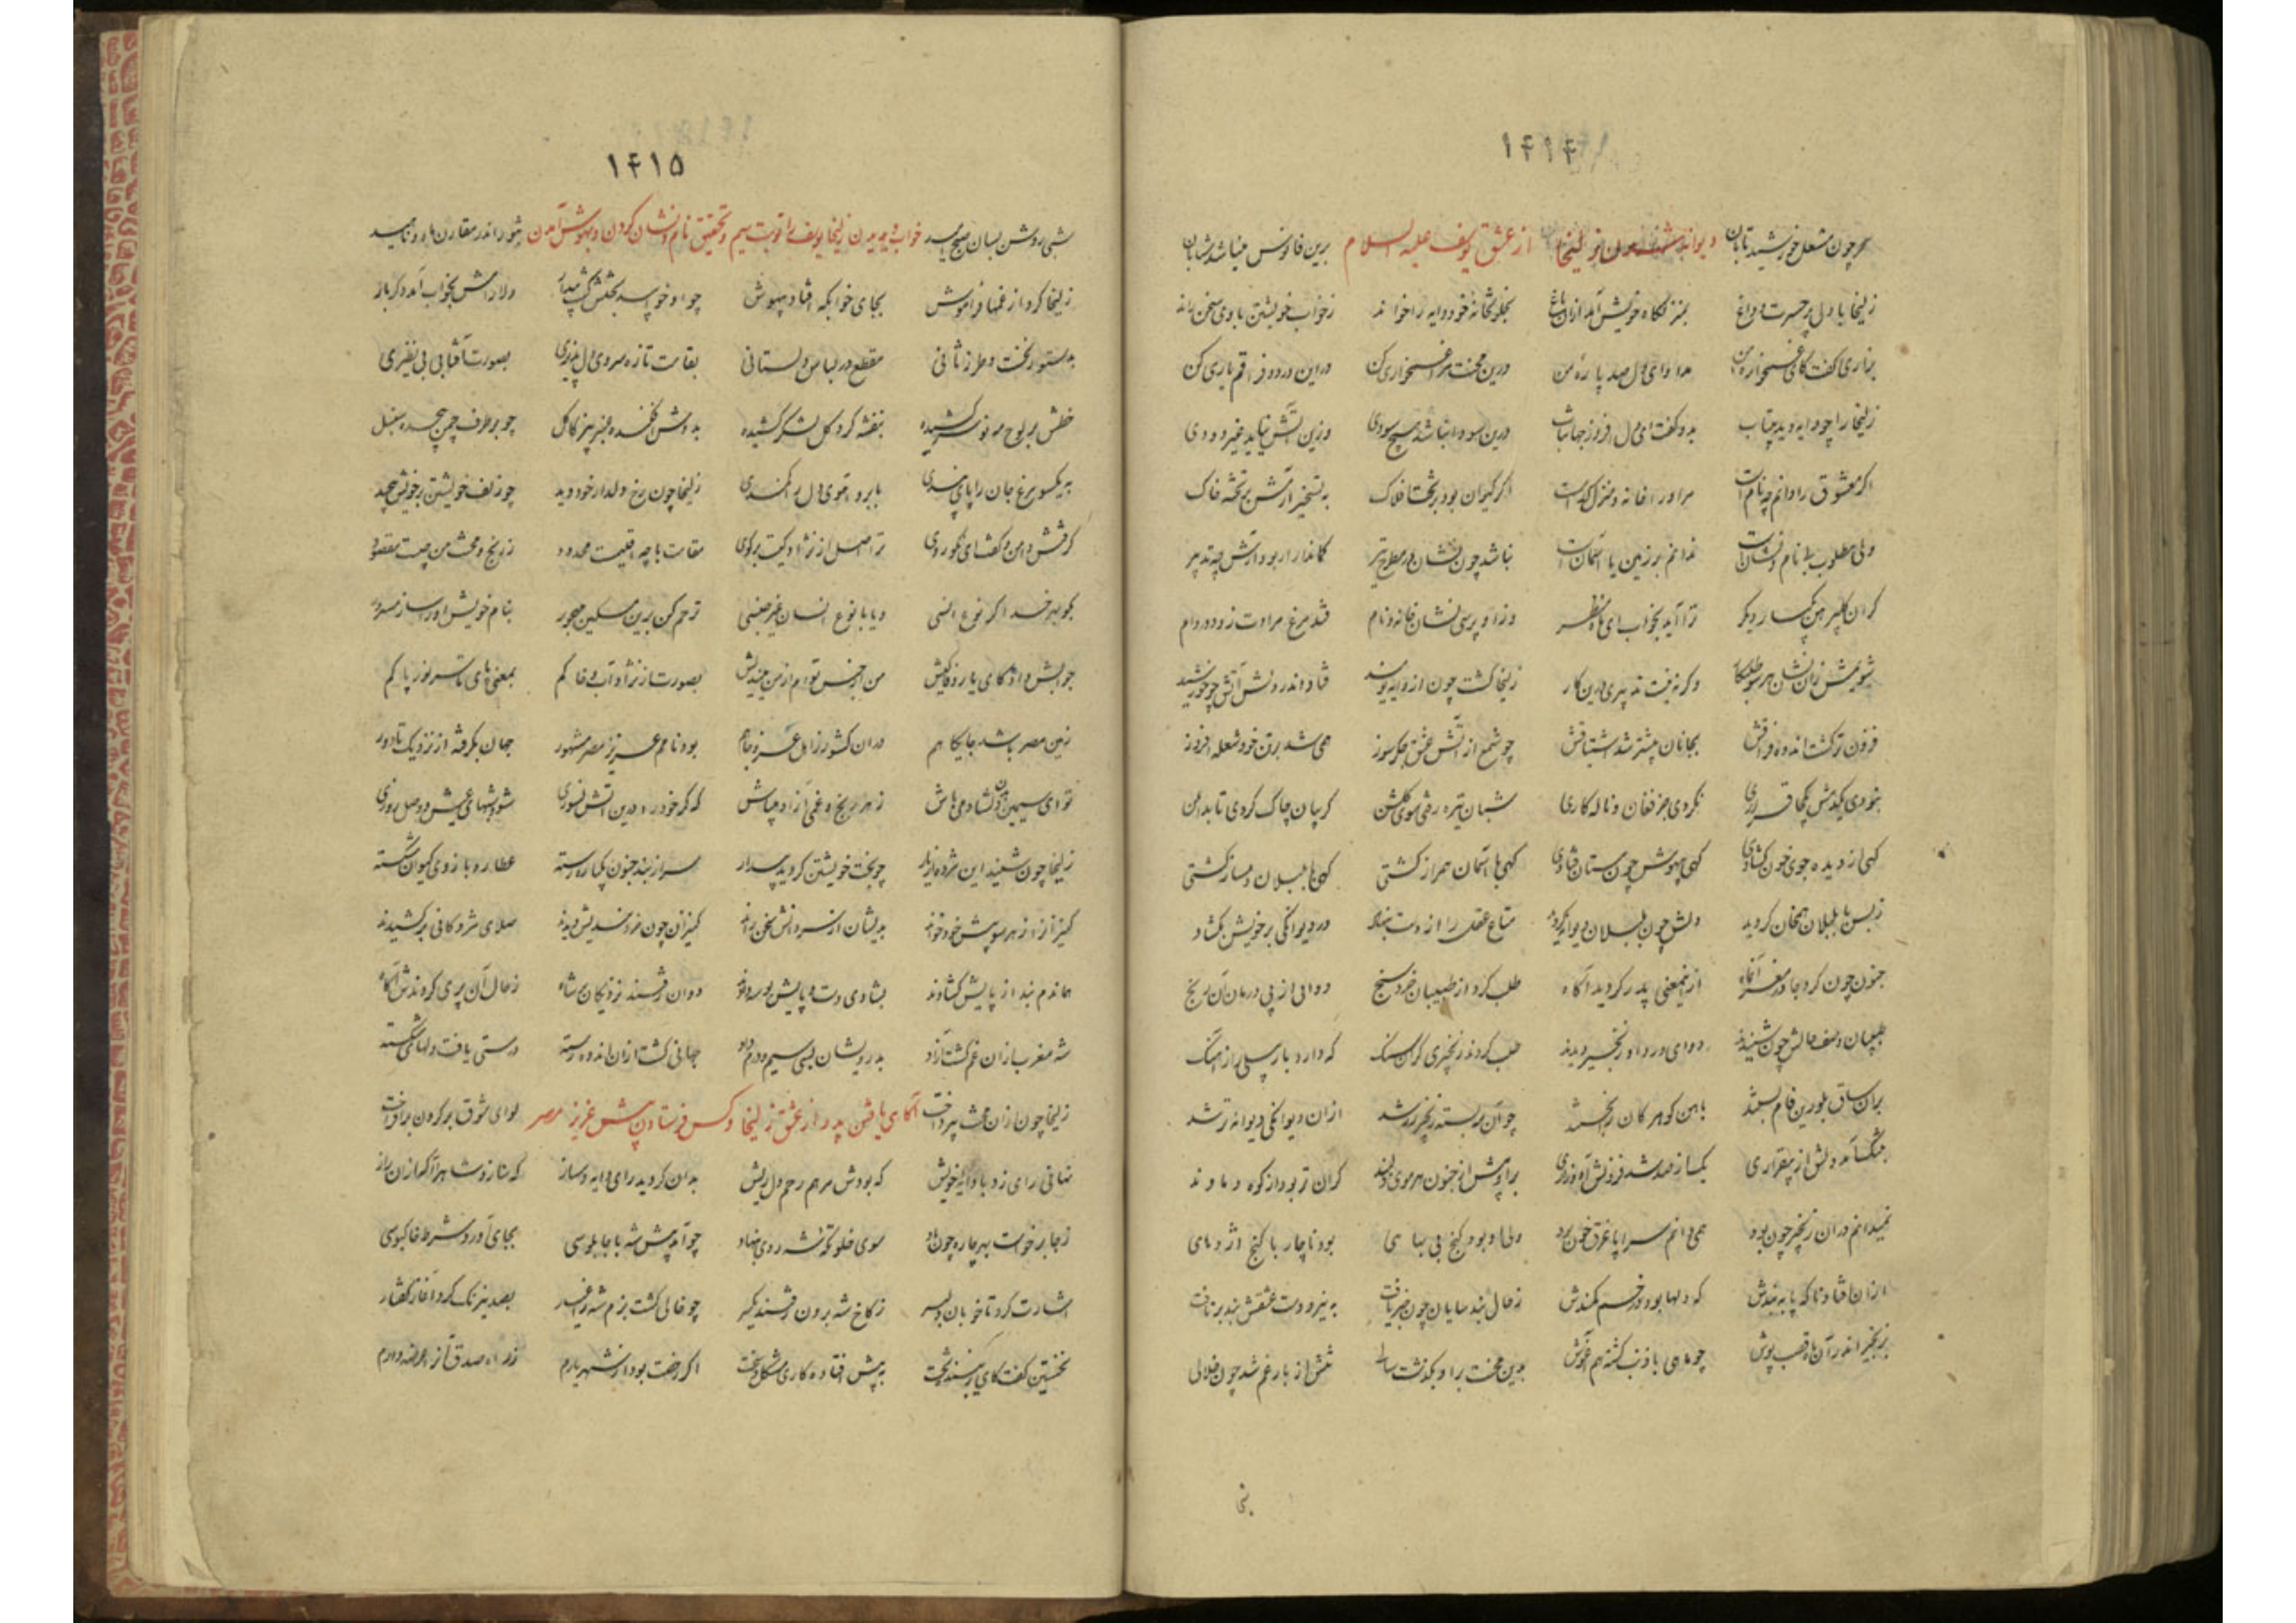 ۱۴۱۴
سحر چون مشعل خورشید تابان دیوانه شدن زلیخا از عشق یوسف علیه السلام برین فانوس مینا شد شتابان
زلیخا با دل پر حسرت و داغ بمنزلگاه خویش آمد ازان باغ بخلوتخانهٔ خود دایه را خواند زخواب خویشتن با وی سخن راند
بزاری گفت کای غمخوارهٔ من مداوای دل صد پارهٔ من درین محنت مرا غمخواری کن درین درد و فراقم یاری کن
زلیخا را چو دایه دید بیتاب بدو گفت ای دل افروز جهانتاب درین سودا نباشد هیچ سودی وزین آتش نیابد غیر دودی
اگر معشوق را دانم چه نام است مر او را خانه و منزل کدام است اگر کیوان بود بر تخت افلاک به تسخیر آرمش بر تختهٔ خاک
ولی مطلوب بی نام و نشانست ندانم بر زمین یا آسمانست نباشد چون نشان در مطرح تیر کماندار ار بود آرش چه تدبیر
گر آن گلپیرهن یکبار دیگر ترا آید بخواب ای ماه منظر وزو پرسی نشان خانه و نام فتد مرغ مرادت زود در دام
شویمش زان نشان هر سو طلبکار وگرنه نیست تدبیری درین کار زلیخا گشت چون از دایه نومید فتاد اندر دلش آتش چو خورشید
فزون تر گشت اندوه فراقش بجانان بیشتر شد اشتیاقش چو شمع از آتش عشق جگرسوز همی شد برتن خود شعله افروز
نبودی یکدمش یکجا قراری نکردی جز فغان و ناله کاری شبان تیره رفتی سوی گلشن گریبان چاک کردی تا بدامن
گهی از دیده جوی خون گشادی گهی بیهوش چون مستان فتادی گهی با آسمان همراز گشتی گهی با بلبلان دمساز گشتی
زبس با بلبلان همخانه گردید دلش چون بلبلان دیوانه گردید متاع عقل را از دست بنهاد در دیوانگی بر خویش بگشاد
جنون چون کرد جا در مغز آنماه ازین معنی پدر گردید آگاه طلب کرد از طبیبان خردسنج دوایی از پی درمان آن رنج
طبیبان وصف حالش چون شنیدند دوای درد او زنجیر دیدند طلب کردند زنجیری گران سنگ که دارد بار سیلی راز آهنگ
بران ساق بلورین فام بستند باهن گوهر کان شکستند چو آن مه بسته زنجیر زر شد ازان دیوانگی دیوانه تر شد
دلش از بیقراری یکی از صد شد فزونش آه و زاری برو هش از جنون هر موی دلبند گران تر بود از کوه دماوند
نمیدانم دران زنجیر چون بود همی دانم سراپا غرق خون بود ولی او بود گنج بی بهایی بود ناچار با گنج اژدهای
ازان افتاد ناگه پا به بندش که دلها بود در خم کمندش زحال بند سایان چون خبر یافت به نیرو دست عشقش بند برتافت
بزنجیر اندر آن ماه قصب پوش چو ماهی با ذنب گشته هم آغوش بدین محنت برو بگذشت سالی تنش از بار غم شد چون خلالی
شبی
۱۴۱۵
شبی روشن بسان صبح امید خواب دیدن زلیخا یوسف را نوبت سیم و تحقیق نام و نشان کردن و بهوش آمدن شود اندر مقارن ماه و ناهید
زلیخا کرد از غمها فراموش بجای خوابگه افتاد بیهوش چو او خوابید بختش گشت بیدار دلارامش بخواب آمد دگر بار
بدستور نخست و طرز ثانی مقطع در لباس دلستانی بقامت تازه سروی دل پذیری بصورت آفتابی بی نظیری
خطش بر لوح مه نو سر کشیده بنفشه گرد گل لشکر کشیده بدوشش فکنده عنبر بیز کاکل چو بر طرف چمن پیچیده سنبل
به گیسو مرغ جان را پای بندی بابرو آهوی دل را کمندی زلیخا چون رخ دلدار خود دید چو زلف خویشتن بر خویش پیچید
گرفتش دامن و گفت ای نکو روی تو اصل از نژاد کیت برگوی مقامت با چه اقلیمت محدود زرنج و محنت من چیست مقصود
بگو بهر خدا گر نوع انسی و یا با نوع انسان غیر جنسی ترحم کن برین مسکین مهجور بنام خویش او را ساز مسرور
جوابش داد کای یار وفاکیش من از جنس توام از من میندیش بصورت از نژاد آب و خاکم بمعنی پای تا سر نور پاکم
زمین مصر باشد جایگاهم دران کشور زاهل عز و جاهم بود نامم عزیز مصر مشهور جهان بگرفته از نزدیک تا دور
تو ای سیمین بدن دلشاد می باش زهر رنج و غمی آزاد میباش که گر خود را درین آتش نسوزی شود شبهای عیش و وصل روزی
زلیخا چون شنید این مژده از یار چو بخت خویشتن گردید بیدار سر از بند جنون یکباره رسته عطارد بازوی کیوان شکسته
کنیزان را زهر سو پیش خود خواند بدیشان از سر دانش سخن راند کنیزان چون خردمندیش دیدند صلای مژدگانی برکشیدند
هماندم بند از پایش گشادند بشادی دست و پایش بوسه دادند دوان رفتند نزدیکان بر شاه زحال آن پری کردندش آگاه
شه مغرب ازان غم گشت آزاد بدرویشان بسی سیم و درم داد جهانی گشت ازان اندوه رسته درستی یافت دلهای شکسته
زلیخا چون ازان محنت بپرداخت آگاهی یافتن پدر از عشق زلیخا و کس فرستادن پیش عزیز مصر لوای شوق بر گردون برافراخت
نهانی رای زد با دایهٔ خویش که بودش مرهم زخم دل ریش بدان گردید رای دایه دمساز که سازد شاه را آگه ازان راز
زجا برخاست بهر چاره چون باد سوی خلوتگه شه روی بنهاد چو آمد پیش شه با چابلوسی بجای آورد شرط خاکبوسی
اشارت کرد تا خوبان دلبر زکاخ شه برون رفتند یکسر چو خالی گشت بزم شه زاغیار بصد نیرنگ کرد آغاز گفتار
نخستین گفت کای زیبنده تخت به پیش افتاده کاری مشکل و سخت اگر رخصت بود از شهریارم زراه صدق آنرا عرضه دارم